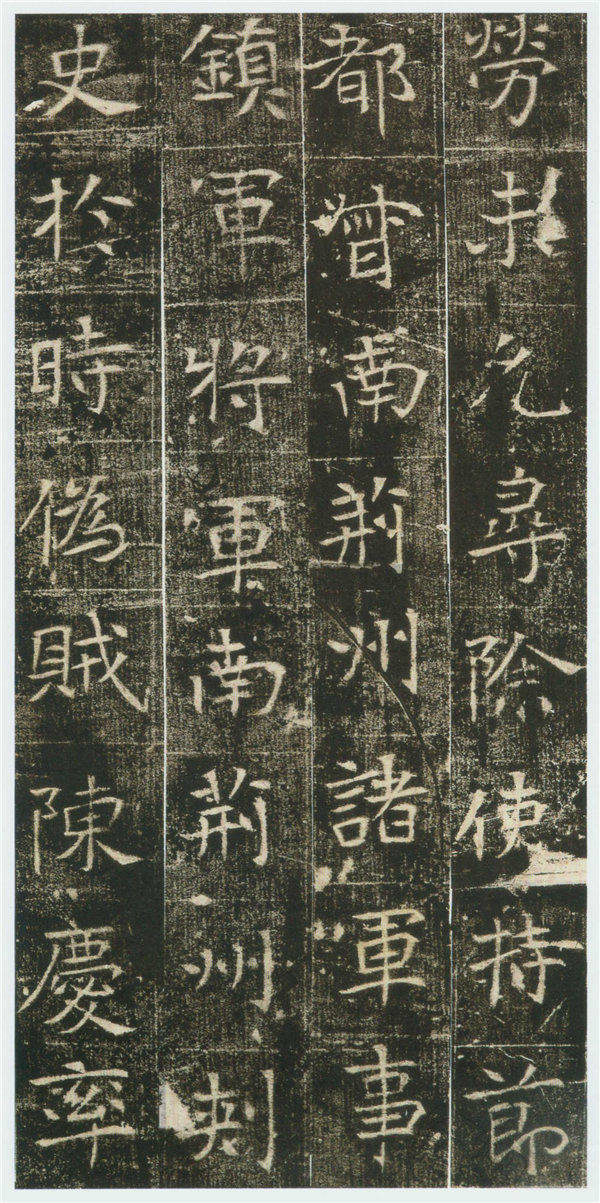 勞未允尋除使持節
都督南荊州諸軍事
鎮軍將軍南荊州刺
史於時偽賊陳慶率